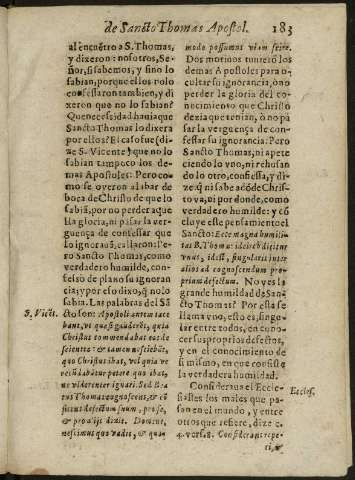 de Sancto Thomas Apostol. 183
al encuẽtro a S. Thomas,
y dixeron: nosotros, Se-
ñor, si sabemos, y sino lo
sabian, porque ellos no lo
cõfessaron tambien, y di
xeron que no lo sabian?
Que necessidad hauia que
Sancto Thomas lo dixera
por ellos? El caso fue (di
ze S. Vicente) que no lo
sabian tampoco los de-
mas Apostoles: Pero co-
mo se oyeron alabar de
boca de Christo de que lo
sabiã, por no perder aque
lla gloria, ni passar la ver-
guença de confessar que
lo ignorauã, callaron: Pe-
ro Sancto Thomas, como
verdadero humilde, con-
fesso de plano su ignoran
cia; y por esso dixo, q̃ no lo
sabia. Las palabras del Sã
S. Vicẽt.
cto son: Apostoli ante iacta
bant, vt quasi gauderẽt, quia
Christus commendabat eos de
scientes: & tamen nesciebãt,
quo Christus ibat, vel quia ve
recundabatur petere quo ibat,
ne viderentur ignari. Sed Bea
tus Thomas cognoscens, & cõ
fitens defectum suum, pro se,
& pro alijs dixit. Domine,
nescimus quo vadis, & quo-
modo possumus viam scire.
Dos motiuos tuuierõ los
demas Apostoles para o-
cultar su ignorancia, õ no
perder la gloria del co-
nocimiento que Christo
dezia que tenian, ò no pa
sar la verguença de con-
fessar su ignorancia: Pero
Sancto Thomas, ni apete
ciendo lo vno, ni rehusan
do lo otro, confessa, y di-
ze q̃ ni sabe adõde Chris-
to va, ni por donde, como
verdadero humilde: y cõ
cluye este pensamiento el
Sancto: Ecce magna humili-
tas B. Thomæ: ideirco dicitur
vnus, idest, singularis inter
alios ad cognoscendum pro-
prium defectum. No veys la
grande humildad de Sanc
to Thomas? Por esta se
llama vno, esto es, singu-
lar entre todos, en cono-
cer sus proprios defectos,
y en el conocimiento de
si mismo, en que consiste
la verdadera humildad.
Considerauo el Eccle-
Eccles.
siastes los males que pas-
san en el mundo, y entre
otros que refiere, dize c.
4. vers. 8. Considerans repe-
ri, &